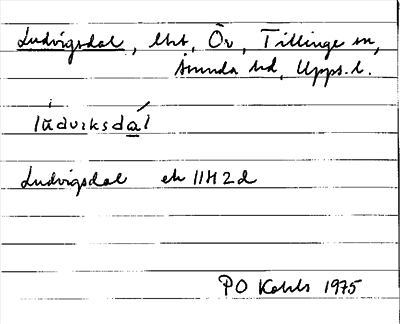 Ludvigsdal, lht, Öv, Tillinge sn,
Åsunda hd, Upps. l.
lùdviksdál
Ludvigsdal ek 11H2d
P O Kohls 1975